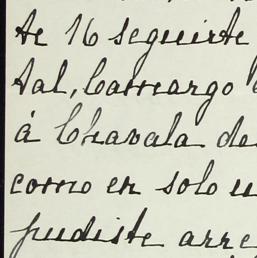 te 16 seguirte
tal, Camargo
á Chavala de
como en solo u
pudiste arre